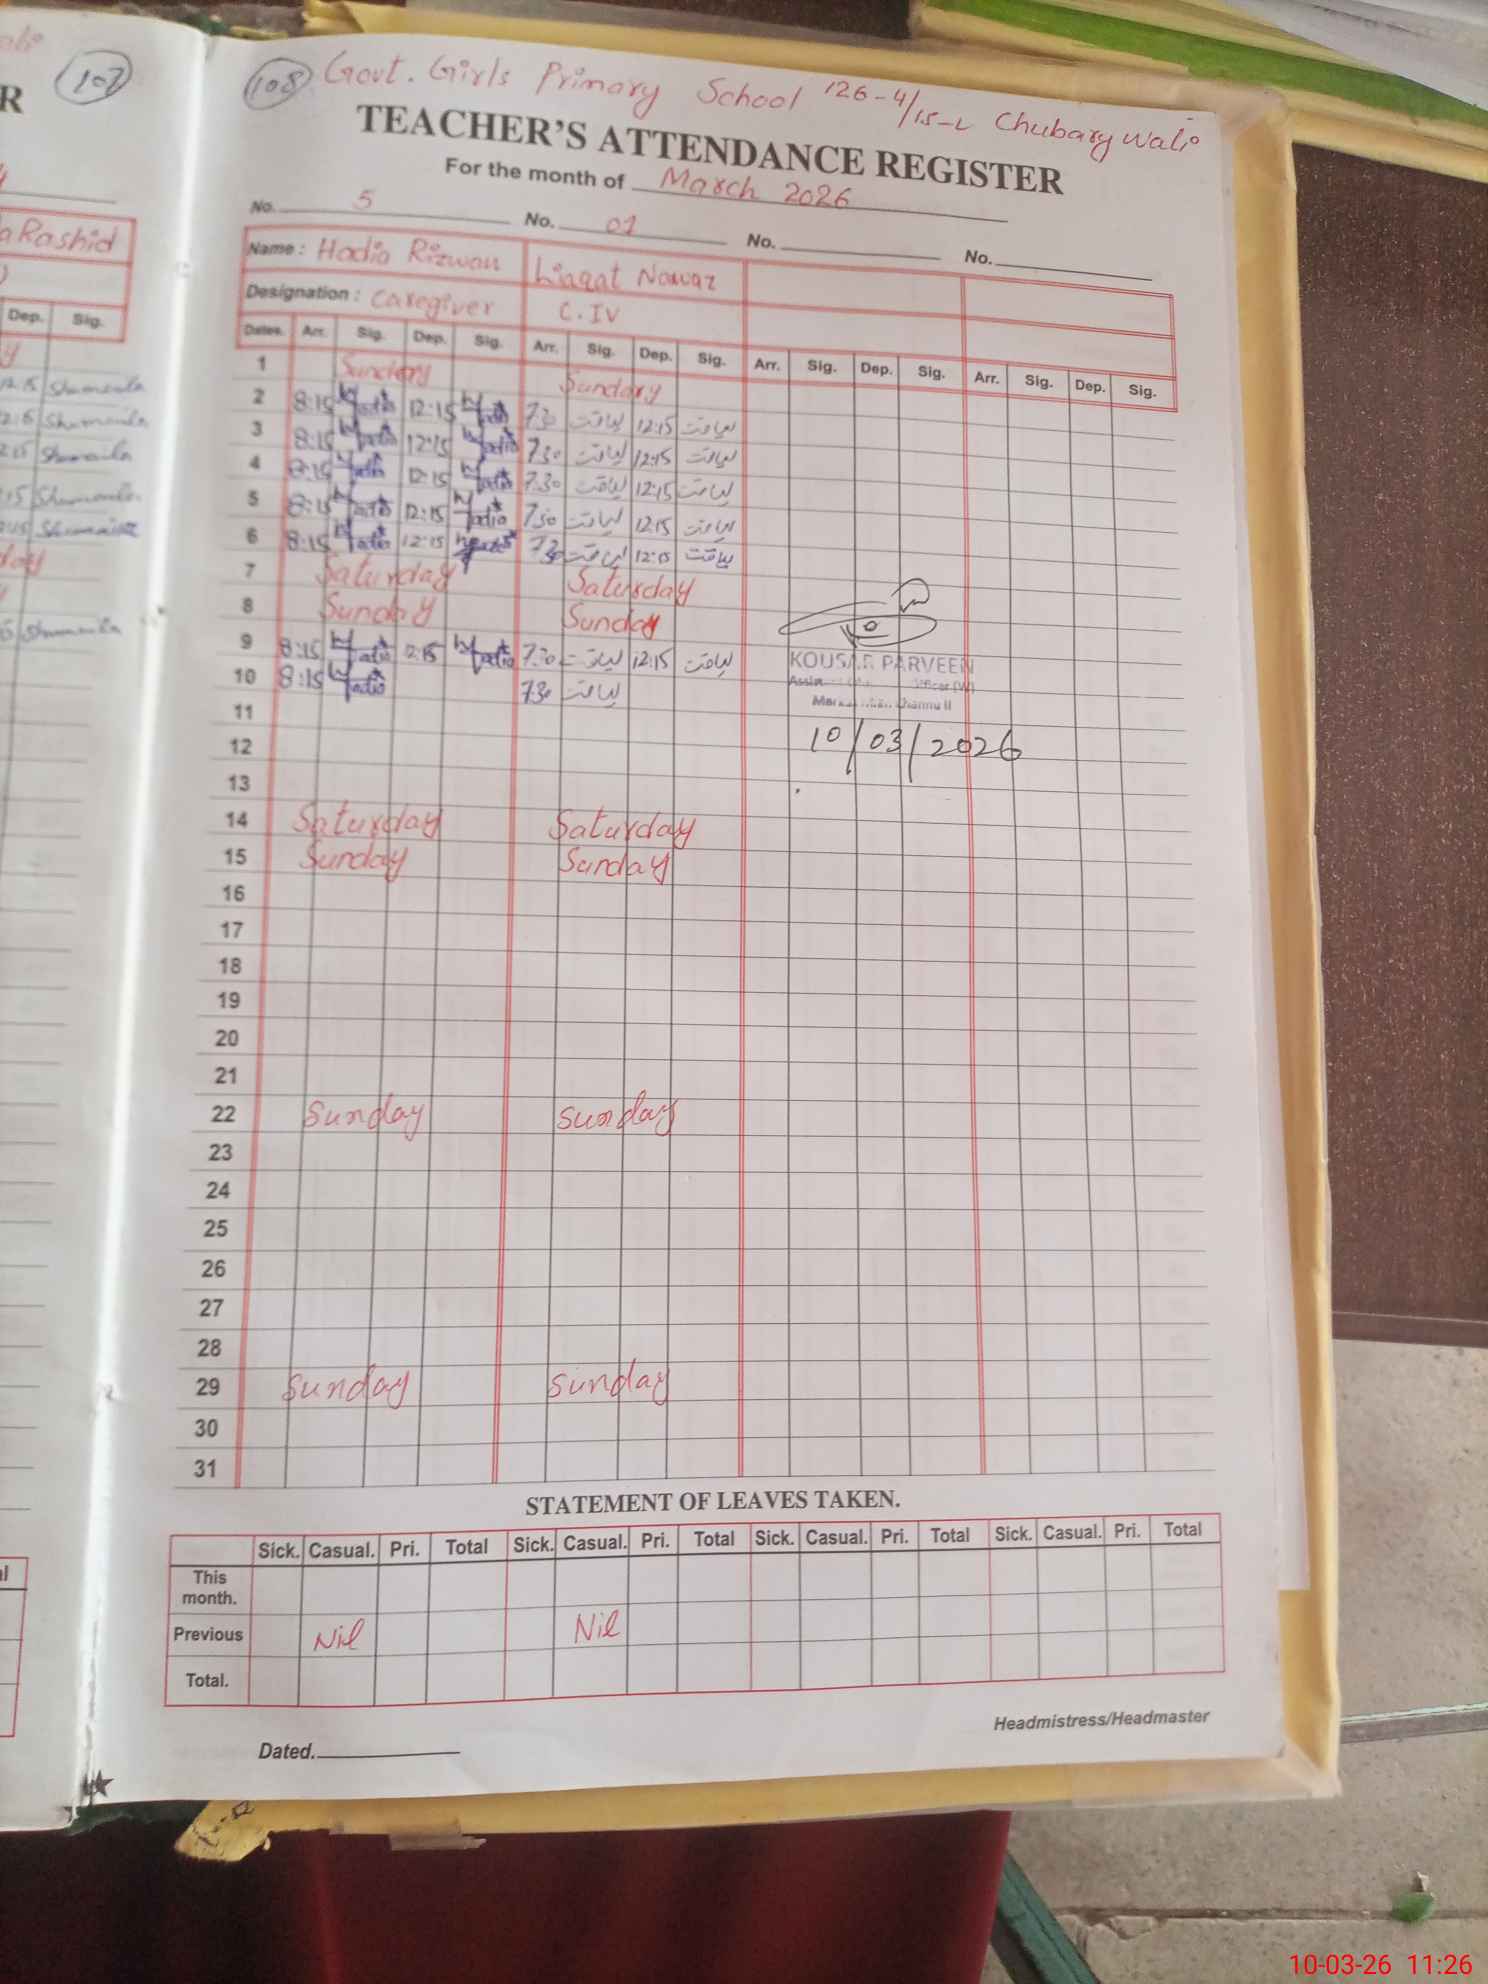 108 Govt. Girls Primary School 126-4/15-L Chubary Wali
TEACHER'S ATTENDANCE REGISTER
For the month of March 2026
No. 5 No. 01 No. No.
Name : Hadia Rizwan Liaqat Nawaz
Designation : Caregiver C.IV
Dates. Arr. Sig. Dep. Sig. Arr. Sig. Dep. Sig. Arr. Sig. Dep. Sig. Arr. Sig. Dep. Sig.
1 Sunday Sunday
2 8:15 Hadia 12:15 Hadia 7.30 لیاقت 12:15 لیاقت
3 8:15 Hadia 12:15 Hadia 7.30 لیاقت 12:15 لیاقت
4 8:15 Hadia 12:15 Hadia 7.30 لیاقت 12:15 لیاقت
5 8:15 Hadia 12:15 Hadia 7.30 لیاقت 12:15 لیاقت
6 8:15 Hadia 12:15 7.30 لیاقت 12:15 لیاقت
7 Saturday Saturday
8 Sunday Sunday
9 8:15 Hadia 12:15 Hadia 7.30 لیاقت 12:15 لیاقت
10 8:15 Hadia 7.30 لیاقت
KOUSAR PARVEEN
11
12
10/03/2026
13
14 Saturday Saturday
15 Sunday Sunday
16
17
18
19
20
21
22 Sunday Sunday
23
24
25
26
27
28
29 Sunday Sunday
30
31
STATEMENT OF LEAVES TAKEN.
Sick. Casual. Pri. Total Sick. Casual. Pri. Total Sick. Casual. Pri. Total Sick. Casual. Pri. Total
This month.
Previous Nil Nil
Total.
Headmistress/Headmaster
Dated.
107
R
a Rashid
Dep. Sig.
12:15 Shumaila
Shumaila
Shumaila
Shumaila
Shumaila
Shumaila
10-03-26 11:26